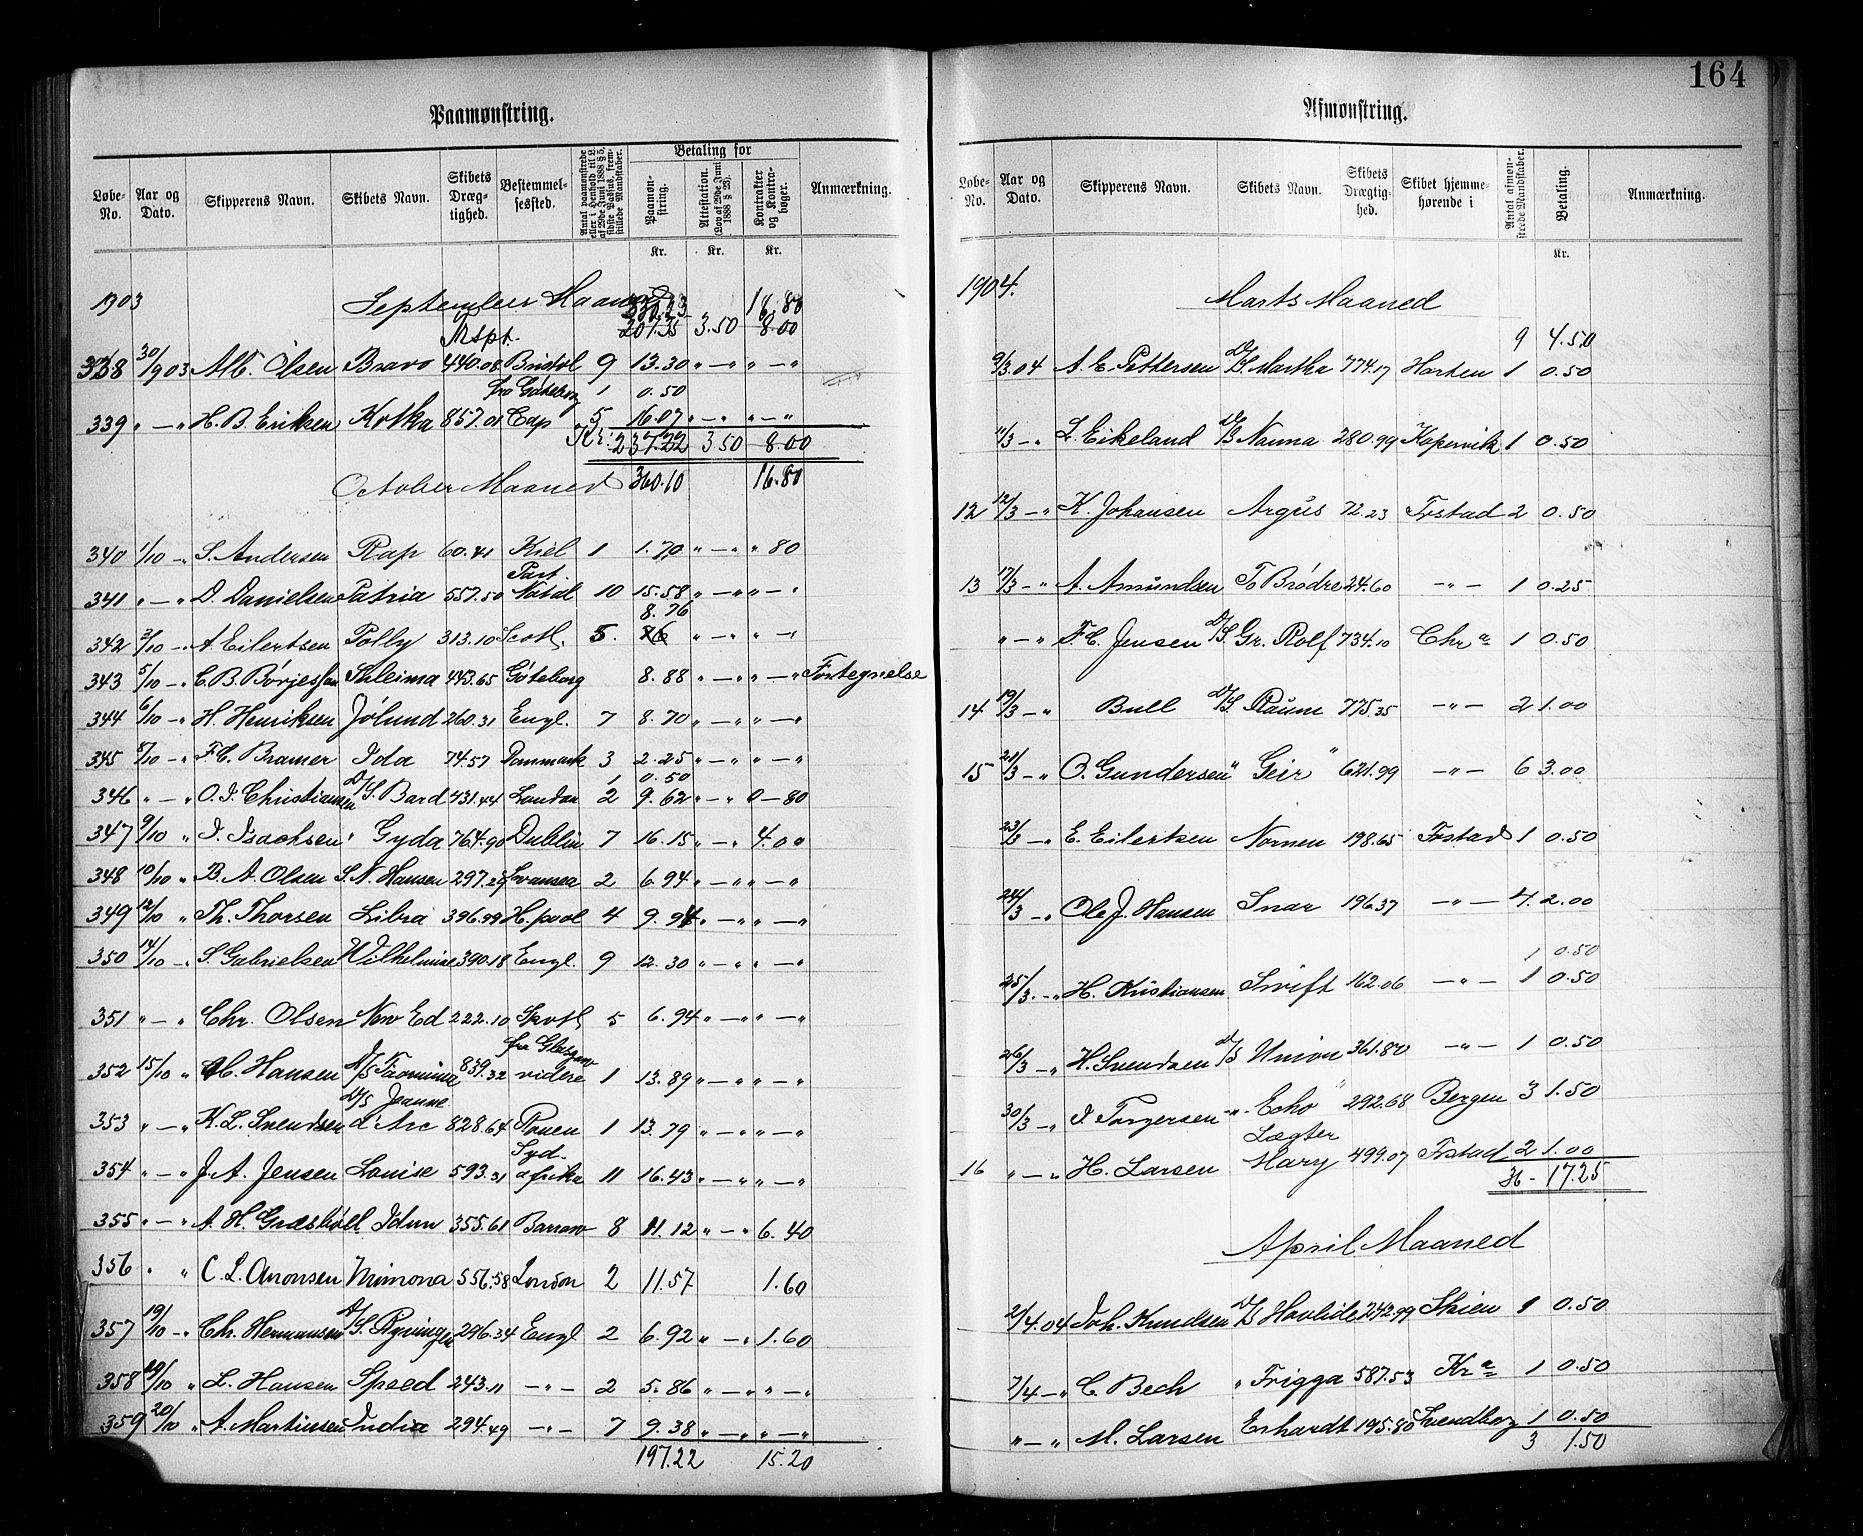 164
Paamønstring.
Løbe-No. Aar og Dato. Skipperens Navn. Skibets Navn. Skibets Dræg-tighed. Bestemmel-sessted. Antal paamønstrede eller i Henhold til L. af 29de Juni 1888 § 5, sidste Passus, frem-stillede Mandskaber. Betaling for Paamøn-string. Attestation. (Lov af 29de Juni 1888 § 25). Kontrakter og Kontra-bøger. Anmærkning.
Kr. Kr. Kr.
1903 September Maaned 16.80
Mspt. 201.35 3.50 8.00
338 30/9 03 Alb. Olsen Bravo 440.08 Bristol 9 13.30 " — " " — "
fra Göteborg 1 0.50
339 " — " H. B. Eriksen Kotka 857.01 Cap 5 16.07 " — " " — "
Kr: 237.22 3.50 8.00
October Maaned 360.10 16.80
340 1/10 — " S. Andersen Rap 60.41 Kiel 1 1.70 " — " " 80
341 " — " D. Danielsen Patria 557.50 Port Natal 10 15.58 " — " " — "
8.76
342 3/10 — " A. Eilertsen Polly 313.10 Scotl. 5. " — " " — "
343 5/10 — " C. B. Börjesson Suleima 443.65 Göteborg 8.88 " — " " — " Fortegnelse
344 6/10 — " H. Henriksen Jølund 260.31 Engl. 7 8.70 " — " " — "
345 8/10 — " F. C. Bramer Ida 74.57 Danmark 3 2.25 " — " " — "
1 0.50
346 " — " O. J. Christiansen D/S. Bard 431.44 London 2 9.62 " — " 0 — 80
347 9/10 " J. Isachsen " Gyda 764.90 Dublin 7 16.15 " — " 4.00
348 10/10 " B. A. Olsen S. N. Hansen 297.29 Svansea 2 6.94 " — " " — "
349 12/10 " Th. Thorsen Libra 396.99 H.pool 4 9.94 " — " " — "
350 14/10 — " S. Gabrielsen Wilhelmine 390.18 Engl. 9 12.30 " — " " — "
351 " — " Chr. Olsen New Ed 222.10 Skotl 5 6.94 " — " " — "
352 15/10 " C. Hansen D/S Taormina 839.32 fra Glasgow videre 1 13.89 " — " " — "
353 " — " K. L. Svendsen D/S Jeanne d'Arc 828.64 Rouen 1 13.79 " — " " — "
354 " — " J. A. Jensen Louise 593.31 Syd-afrika 11 16.43 " — " " — "
355 " — " A. H. Græsböll Idun 355.61 Barrow 8 11.12 " — " 6.40
356 " " C. L. Aronsen Mimona 556.58 London 2 11.57 1.60
357 19/10 — " Chr. Hermansen D/S. Ryvingen 296.34 Engl 2 6.92 " — " 1.60
358 19/10 " L. Hansen Speed 243.11 — " — 2 5.86 " — " " — "
359 20/10 " A. Martinsen India 294.49 — " — 7 9.38 " — " " — "
197.22 15.20
Afmønstring.
Løbe-No. Aar og Dato. Skipperens Navn. Skibets Navn. Skibets Drægtig-hed. Skibet hjemme-hørende i Antal afmøn-strede Mandskaber. Betaling. Anmærkning.
Kr.
1904. Marts Maaned
9 4.50
9/3.04 A. E. Pettersen D/S. Martha 774.17 Horten 1 0.50
11/3 — " L. Eikeland D/S Nanna 280.99 Kopervik 1 0.50
12 12/3 — " K. Johansen Argus 72.23 Frstad 2 0.50
13 17/3 — " A. Amundsen To Brödre 24.60 — " — 1 0.25
" — " F. C. Jensen D/S. Gr. Rolf 734.10 Chra 1 0.50
14 19/3 — " Bull D/S. Raune 775.35 — " — 2 1.00
15 21/3 — " O. Gundersen " Geir " 621.99 — " — 6 3.00
23/3 — " E. Eilertsen Nornen 198.65 Frstad 1 0.50
24/3 — " Ole J. Hansen Snar 196.37 — " — 4. 2.00
1 0.50
25/3. — " H. Kristiansen Swift 162.06 — " — 1 0.50
26/3 — " H. Svendsen D/S Union 361.80 — " — 1 0.50
30/3 — " J. Torgersen " Echo " 292.68 Bergen 3 1.50
16 " — " H. Larsen Lægter Mary 499.07 Frstad 2 1.00
36 — 17.25
April Maaned
2/4.04 Joh. Knudsen D/S Havlide 242.99 Skien 1 0.50
7/4 — " C. Bech " Frigga 587.53 Kra 1 0.50
" — " M. Larsen Erhardt 195.80 Svendborg 1 0.50
3 1.50